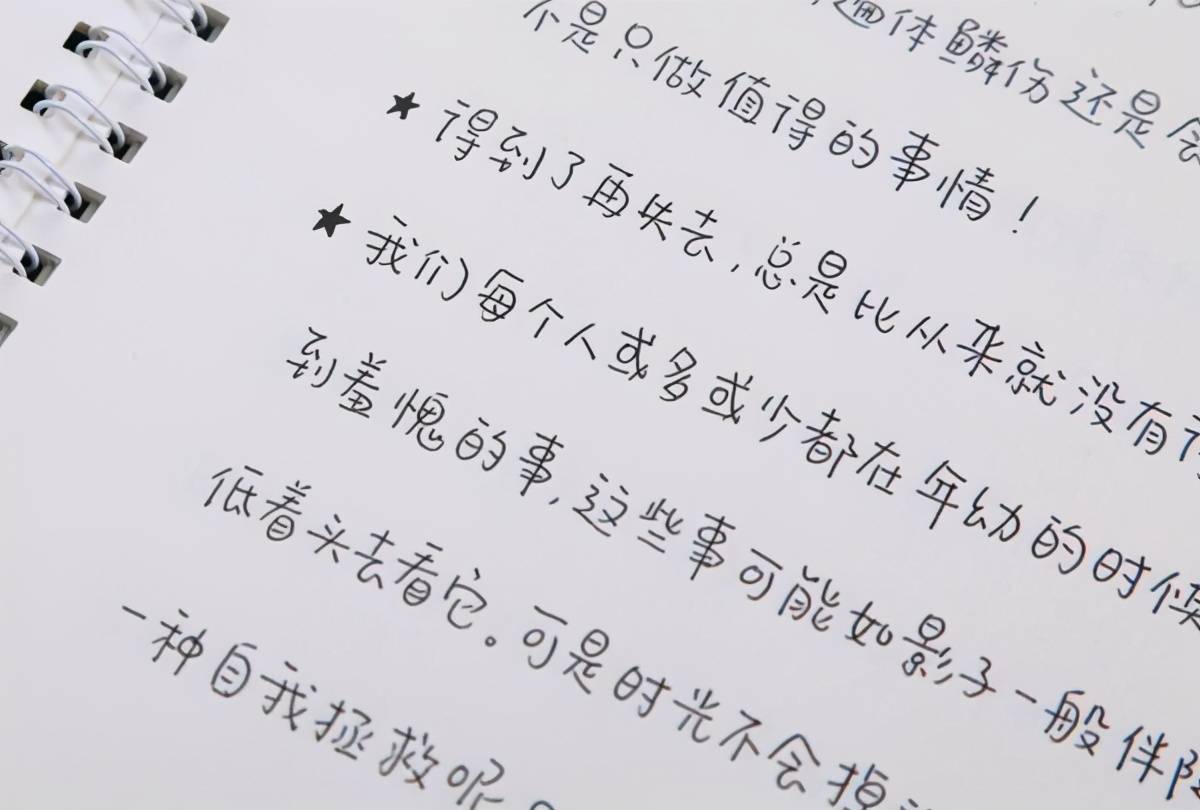 遍体鳞伤还是会
不是只做值得的事情！
★ 得到了再失去，总是比从来就没有得
★ 我们每个人或多或少都在年幼的时候
到羞愧的事，这些事可能如影子一般伴随
低着头去看它。可是时光不会掉
一种自我拯救呢。